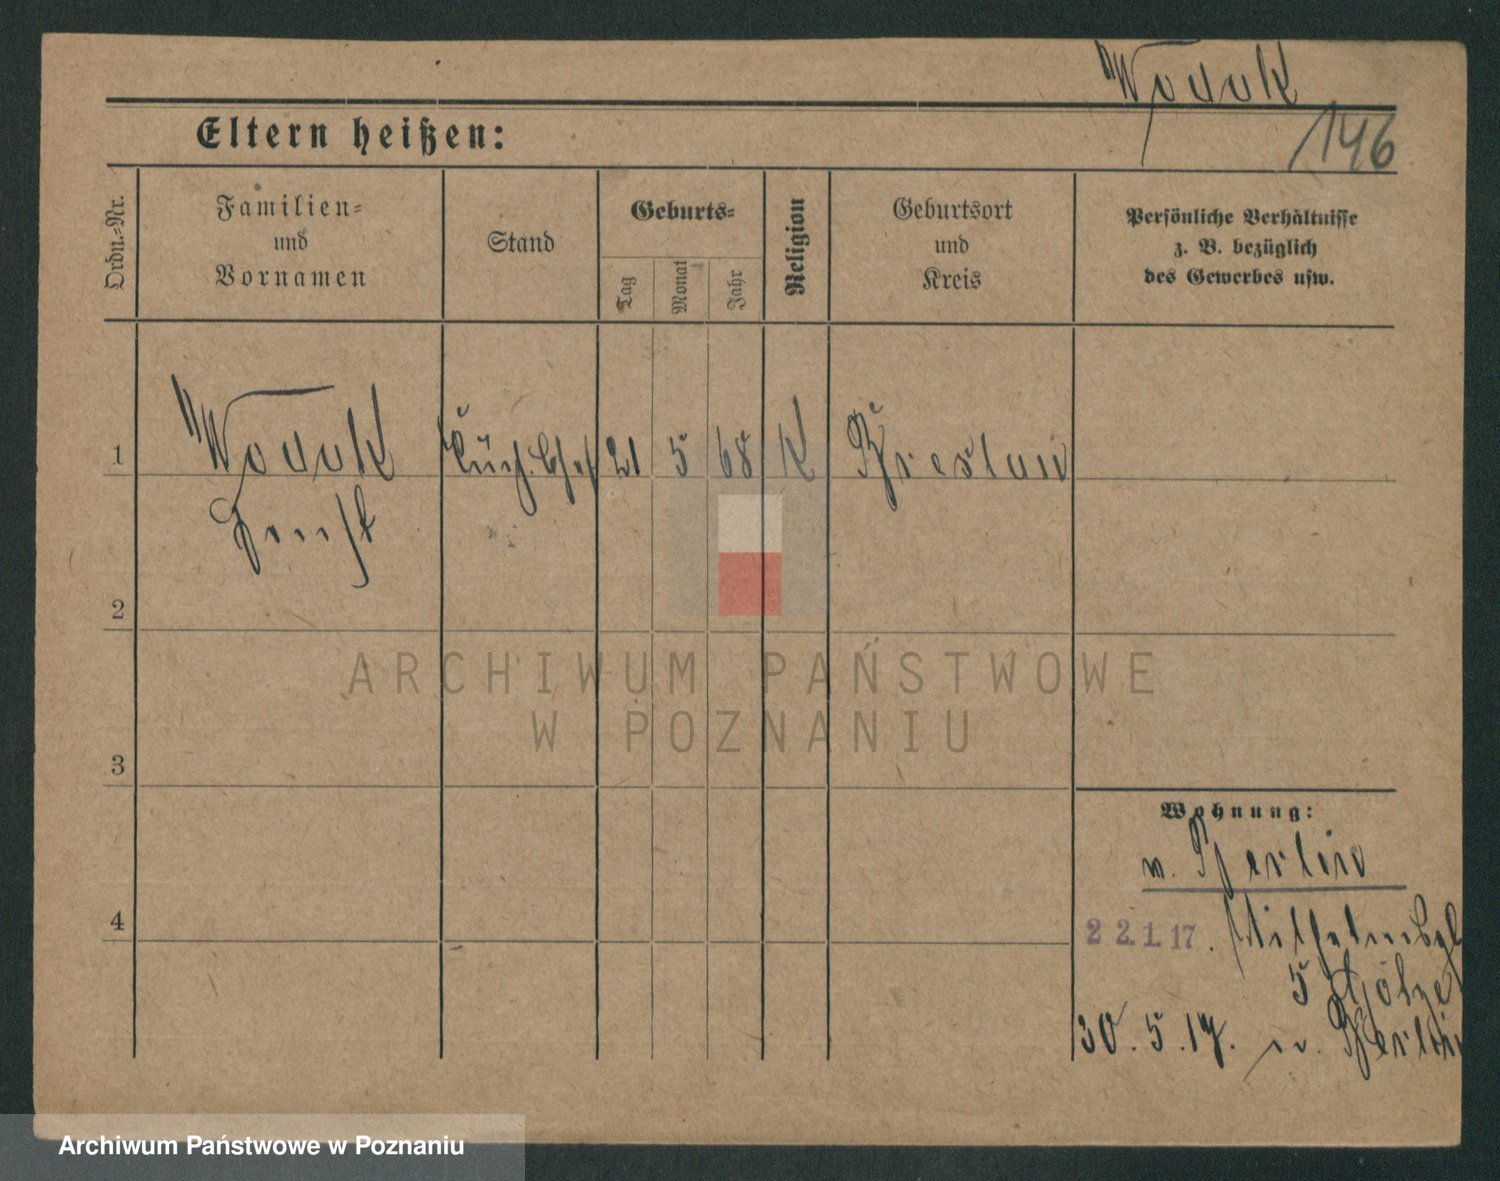 Wodak
146
Eltern heißen:
Ordn.-Nr.
Familien-
und
Vornamen
Stand
Geburts-
Tag
Monat
Jahr
Religion
Geburtsort
und
Kreis
Persönliche Verhältnisse
z. B. bezüglich
des Gewerbes usw.
1
Wodak
Küch. Chef
21
5
68
K
Breslau
Ernst
2
ARCHIWUM PAŃSTWOWE
W POZNANIU
3
Wohnung:
n. Berlin
4
22.1.17.
5
30.5.17. n. Berlin
Archiwum Państwowe w Poznaniu